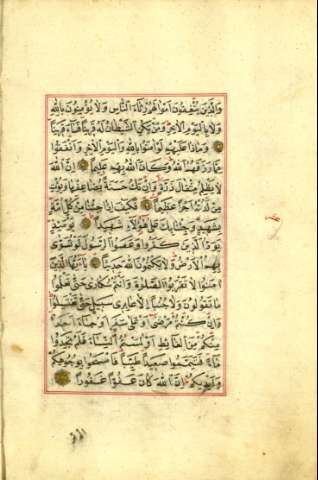 وَالَّذِينَ يُنْفِقُونَ اَمْوَالَهُمْ رِئَاءَ النَّاسِ وَلَا يُؤْمِنُونَ بِاللّٰهِ
وَلَا بِالْيَوْمِ الْاٰخِرِ وَمَنْ يَكُنِ الشَّيْطَانُ لَهُ قَرِينًا فَسَاءَ قَرِينًا
وَمَاذَا عَلَيْهِمْ لَوْ اٰمَنُوا بِاللّٰهِ وَالْيَوْمِ الْاٰخِرِ وَاَنْفَقُوا
مِمَّا رَزَقَهُمُ اللّٰهُ وَكَانَ اللّٰهُ بِهِمْ عَلِيمًا اِنَّ اللّٰهَ
لَا يَظْلِمُ مِثْقَالَ ذَرَّةٍ وَاِنْ تَكُ حَسَنَةً يُضَاعِفْهَا وَيُؤْتِ
مِنْ لَدُنْهُ اَجْرًا عَظِيمًا فَكَيْفَ اِذَا جِئْنَا مِنْ كُلِّ اُمَّةٍ
بِشَهِيدٍ وَجِئْنَا بِكَ عَلٰى هٰؤُلَاءِ شَهِيدًا يَوْمَئِذٍ
يَوَدُّ الَّذِينَ كَفَرُوا وَعَصَوُا الرَّسُولَ لَوْ تُسَوّٰى
بِهِمُ الْاَرْضُ وَلَا يَكْتُمُونَ اللّٰهَ حَدِيثًا يَا اَيُّهَا الَّذِينَ
اٰمَنُوا لَا تَقْرَبُوا الصَّلٰوةَ وَاَنْتُمْ سُكَارٰى حَتّٰى تَعْلَمُوا
مَا تَقُولُونَ وَلَا جُنُبًا اِلَّا عَابِرِى سَبِيلٍ حَتّٰى تَغْتَسِلُوا
وَاِنْ كُنْتُمْ مَرْضٰى اَوْ عَلٰى سَفَرٍ اَوْ جَاءَ اَحَدٌ
مِنْكُمْ مِنَ الْغَائِطِ اَوْ لٰمَسْتُمُ النِّسَاءَ فَلَمْ تَجِدُوا
مَاءً فَتَيَمَّمُوا صَعِيدًا طَيِّبًا فَامْسَحُوا بِوُجُوهِكُمْ
وَاَيْدِيكُمْ اِنَّ اللّٰهَ كَانَ عَفُوًّا غَفُورًا